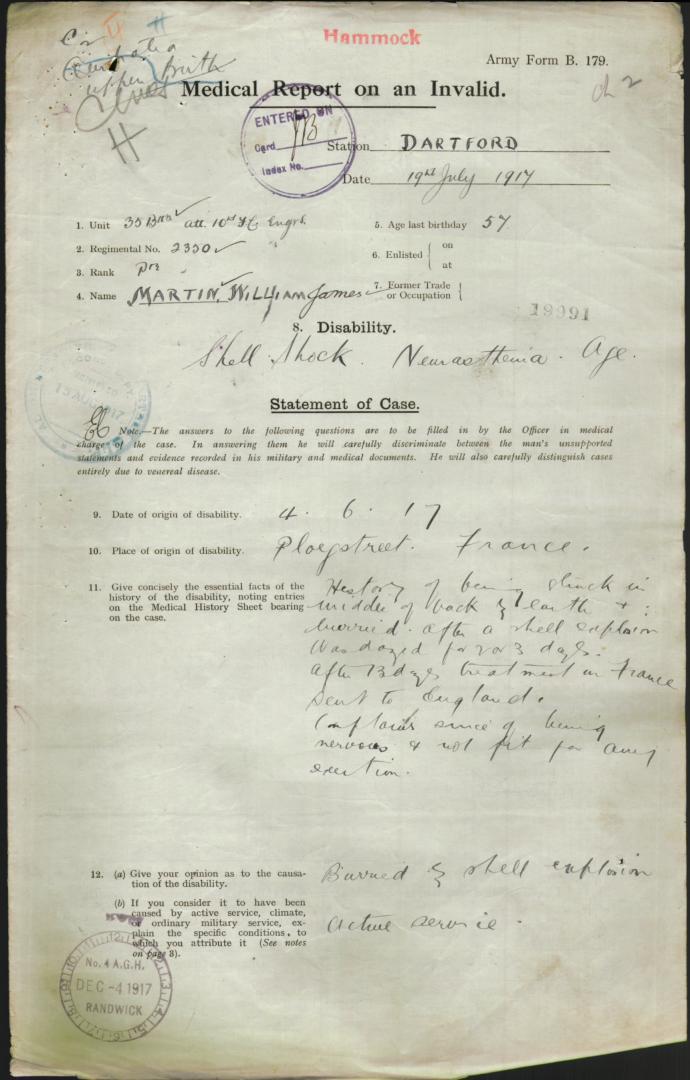 Hammock
Army Form B. 179.
Medical Report on an Invalid.
H
ENTERED ON
Card
Index No.
Station DARTFORD
Date 19th July 1917
1. Unit 35 Bn att. 10th Fd Co Engrs.
5. Age last birthday 57
2. Regimental No. 2350
6. Enlisted { on
at
3. Rank Pte
4. Name MARTIN, WILLIAM James
7. Former Trade
or Occupation {
19991
8. Disability.
Shell Shock. Neurasthenia. Age.
Statement of Case.
Note.—The answers to the following questions are to be filled in by the Officer in medical
charge of the case. In answering them he will carefully discriminate between the man's unsupported
statements and evidence recorded in his military and medical documents. He will also carefully distinguish cases
entirely due to venereal disease.
9. Date of origin of disability. 4. 6. 17
10. Place of origin of disability. Ploegstreet. France.
11. Give concisely the essential facts of the
history of the disability, noting entries
on the Medical History Sheet bearing
on the case.
History of being struck in
middle of back by earth +
burried. after a shell explosion
Was dazed for 2 or 3 days.
After 13 days treatment in France
sent to England.
Complains since of being
nervous & not fit for any
exertion.
12. (a) Give your opinion as to the causa-
tion of the disability.
Burried by shell explosion
(b) If you consider it to have been
caused by active service, climate,
or ordinary military service, ex-
plain the specific conditions, to
which you attribute it (See notes
on page 3).
Active service.
No. 4 A.G.H.
DEC -4 1917
RANDWICK